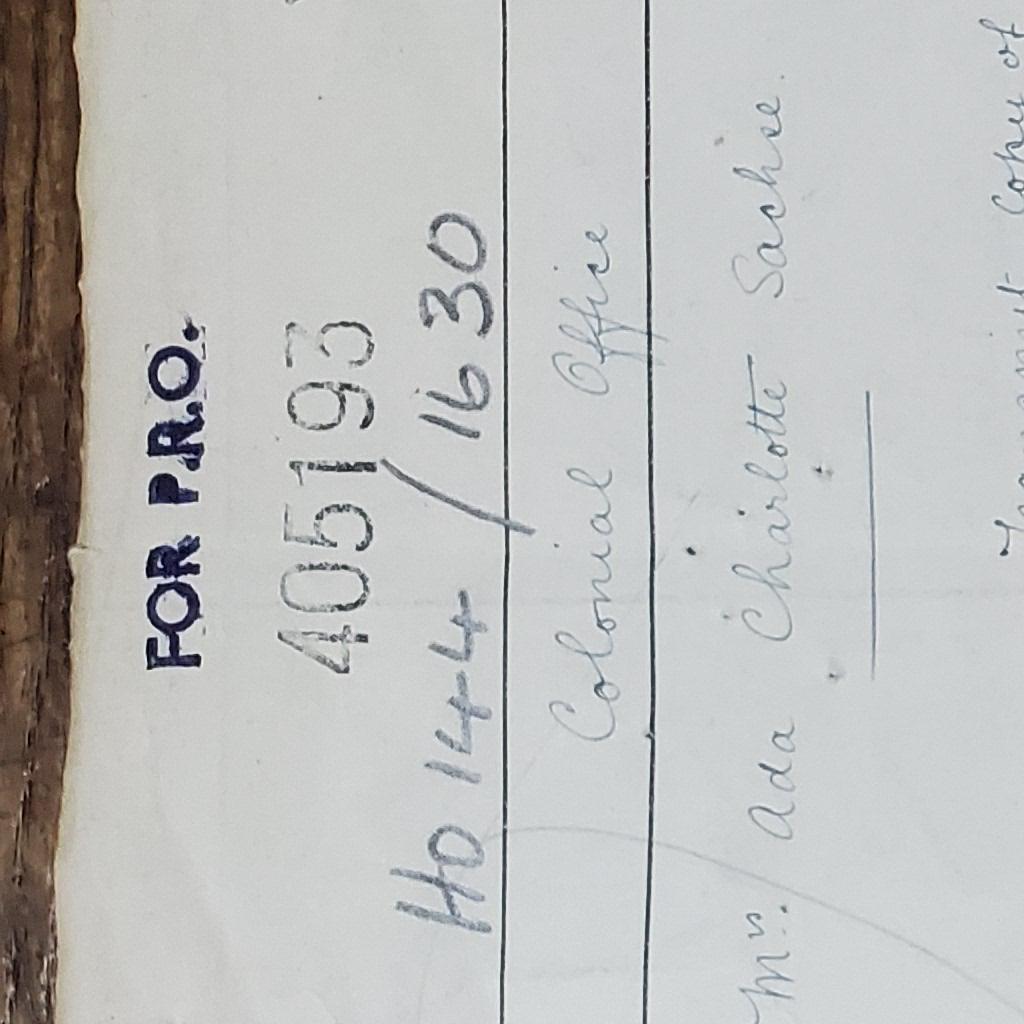 FOR P.R.O.
405193
HO 144/1630
Colonial Office
Mrs. Ada Charlotte Sachse.
copy of